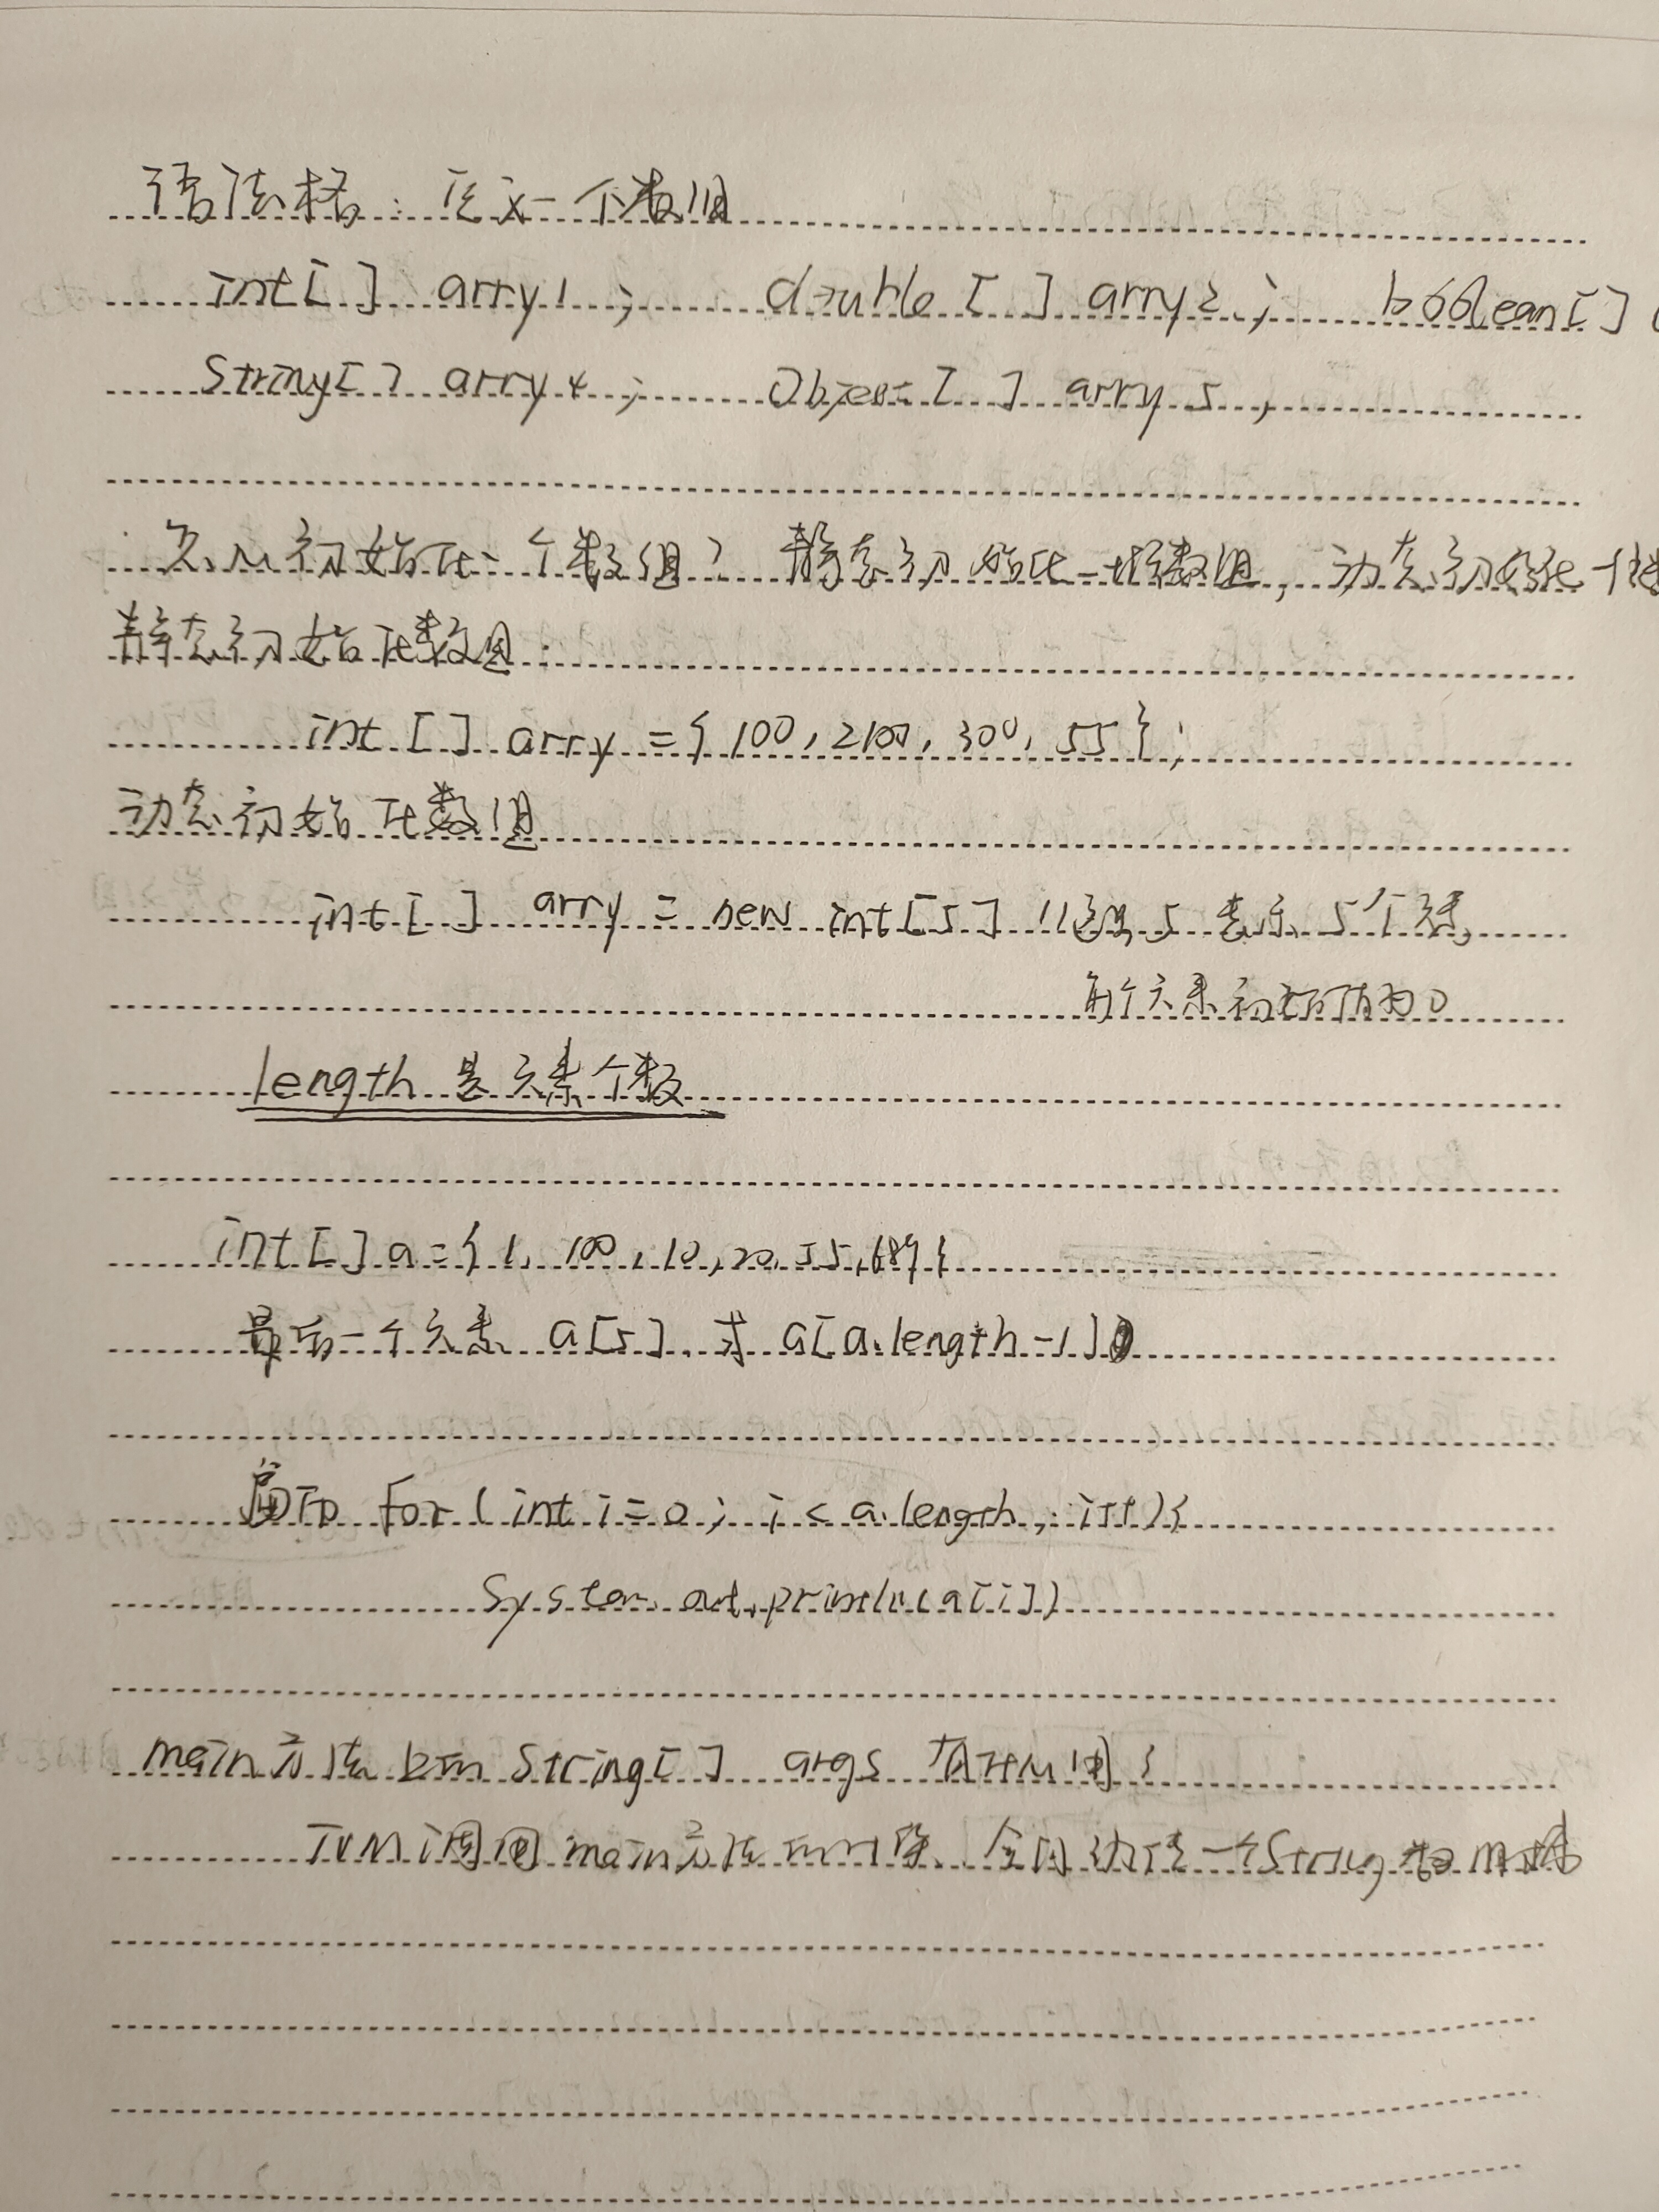 语法格: 定义一个数组
int[ ] arry1 ; double [ ] arry2 ; boolean[ ]
String[ ] arry4 ; Object [ ] arry 5 ;
怎么初始化一个数组? 静态初始化一维数组, 动态初始化一维
静态初始化数组:
int [ ] arry ={ 100, 2100, 300, 55 } ;
动态初始化数组
int[ ] arry = new int[5] //这里5 表示 5个元素,
每个元素初始值为0
length 是元素个数
int[ ] a={ 1, 100, 10, 20, 55, 689 }
最后一个元素 a[5] 或 a[a.length-1]
for ( int i=0 ; i < a.length ; i++){
System.out.println(a[i])
main方法上面 String[ ] args 有什么用?
JVM调用main方法的时候, 会自动传一个String数组